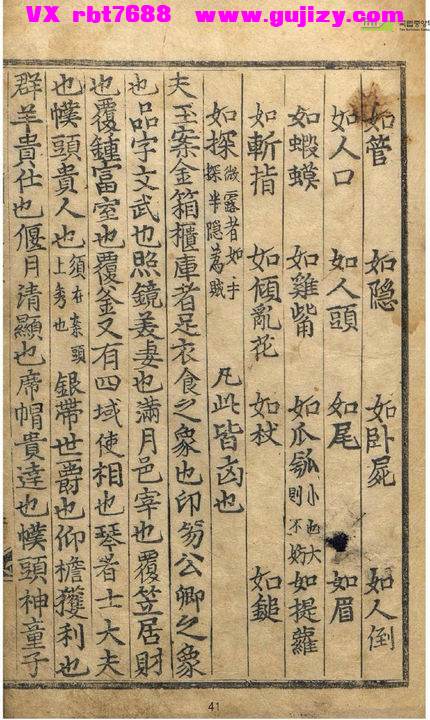 VX rbt7688 www.gujizy.com
如管 如隐 如卧屍 如人倒
如人口 如人頭 如尾 如眉
如蝦蟆 如雞觜 如爪瓠 小凶大則不妨 如提蘿
如斬指 如傾亂花 如杖 如鎚
如探 微露者如手探半隐為賊 凡此皆凶也
夫玉案金箱櫃庫者足衣食之象也印笏公卿之象
也品字文武也照鏡美妻也滿月邑宰也覆笠居財
也覆鍾富室也覆釜又有四域使相也琴者士大夫
也幞頭貴人也 須在案頭上秀也 銀帶世爵也仰檐獲利也
群羊貴仕也偃月清顯也席帽貴達也幞頭神童子
41